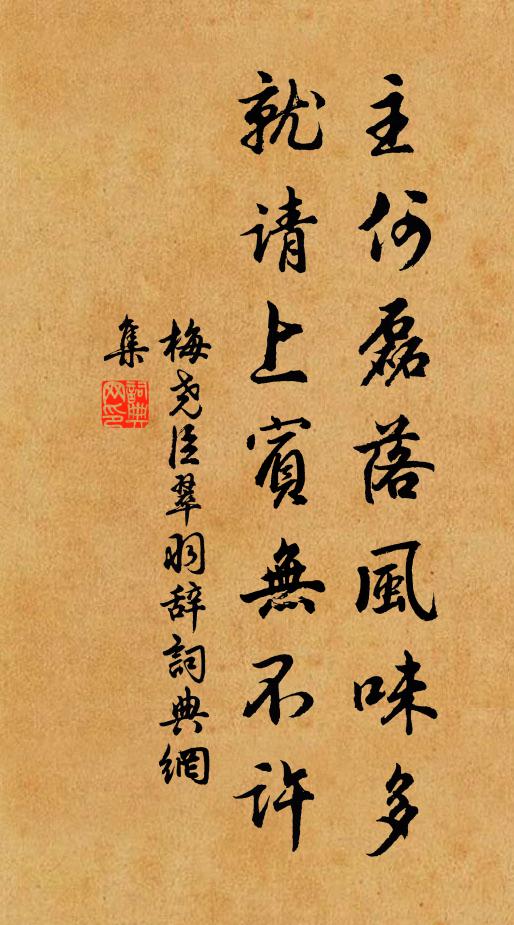 主何磊落風味多
就请上賓無不許
梅尧臣翠羽辞詞典網
集
詞典
网印